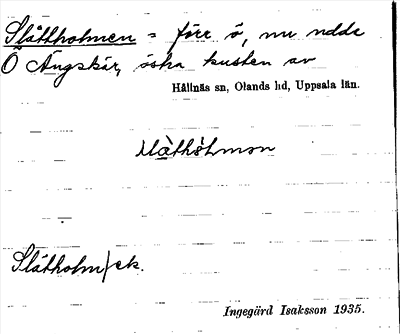 Slåttholmen = förr ö, nu udde
Ö Ängskär, östra kusten av
Hållnäs sn, Olands hd, Uppsala län.
slåthòlmon
Slåtholm/ek.
Ingegärd Isaksson 1935.